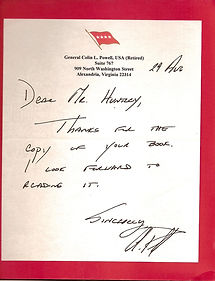 General Colin L. Powell, USA (Retired)
Suite 767
909 North Washington Street
Alexandria, Virginia 22314
29 Aug
Dear Mr. Huntery,
Thanks for the
copy of your book.
I look forward to
reading it.
Sincerely